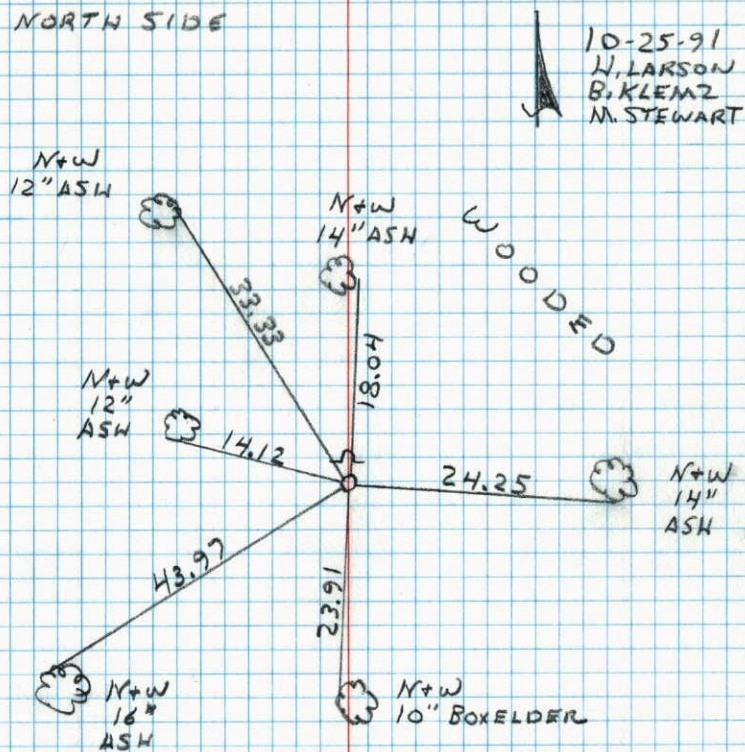 NORTH SIDE
10-25-91
H. LARSON
B. KLEMZ
M. STEWART
N+W
12" ASH
N+W
14" ASH
WOODED
33.33
18.04
N+W
12"
ASH
14.12
24.25
N+W
14"
ASH
43.97
23.91
N+W
16"
ASH
N+W
10" BOXELDER